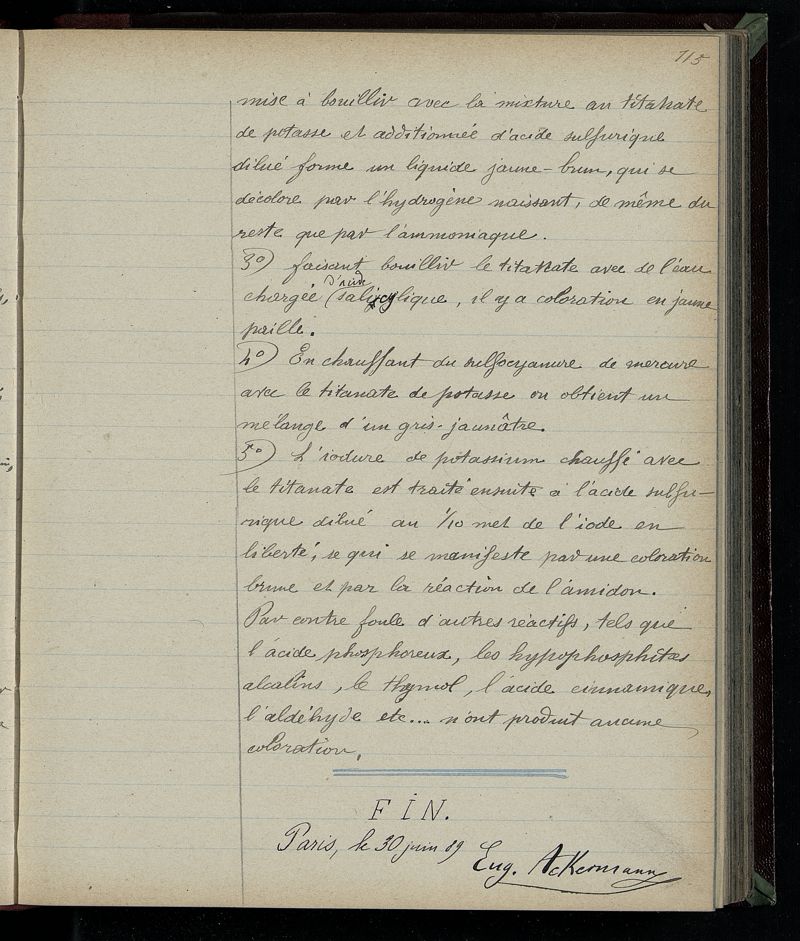 115
mise à bouillir avec la mixture au titanate
de potasse et additionnée d'acide sulfurique
dilué forme un liquide jaune-brun, qui se
décolore par l'hydrogène naissant, de même du
reste que par l'ammoniaque.
3°) faisant bouillir le titanate avec de l'eau
chargée d'acide salicylique, il y a coloration en jaune
paille.
4°) En chauffant du sulfocyanure de mercure
avec le titanate de potasse on obtient un
mélange d'un gris-jaunâtre.
5°) L'iodure de potassium chauffé avec
le titanate est traité ensuite à l'acide sulfu-
rique dilué au 1/10 met de l'iode en
liberté, ce qui se manifeste par une coloration
brune et par la réaction de l'amidon.
Par contre foule d'autres réactifs, tels que
l'acide phosphoreux, les hypophosphites
alcalins, le thymol, l'acide cinnamique,
l'aldéhyde etc... n'ont produit aucune
coloration.
FIN.
Paris, le 30 juin 89
Eug. Ackermann